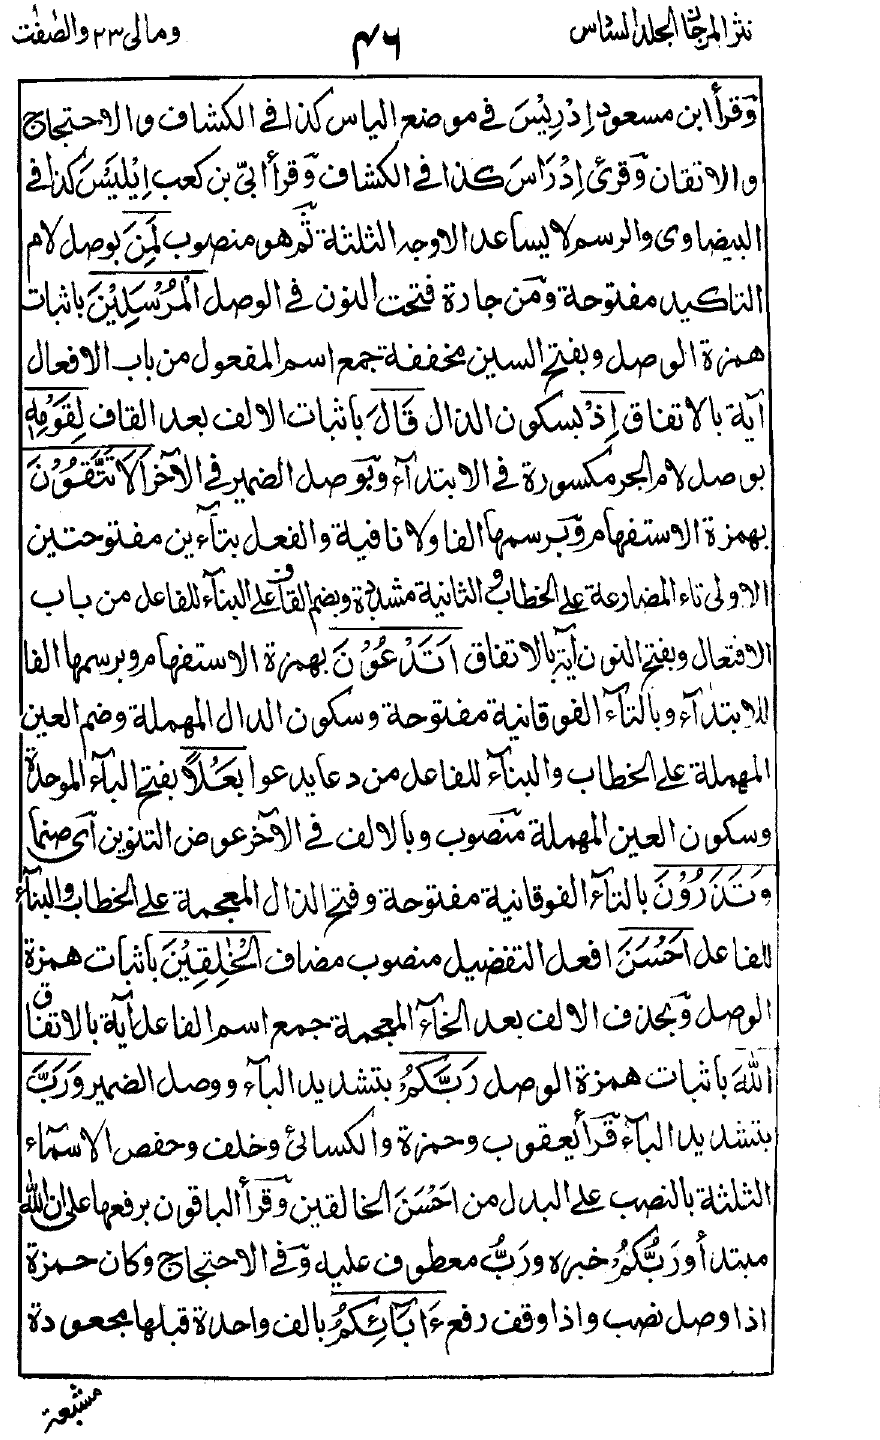 نثر المرجان المجلد السادس ٤٦ ومالى ٢٣ والصفت
وقرأ ابن مسعود إِدْرِيْسَ في موضع الياس كذا في الكشاف والاحتجاج
والاتقان وقرئ إِدْرَاسَ كذا في الكشاف وقرأ ابىّ بن كعب اِيْلِيْسَ كذا في
البيضاوى والرسم لا يساعد الاوجه الثلثة ثم هو منصوب لَمِنَ بوصل لام
التاكيد مفتوحة ومن جارة فتحت النون في الوصل الْمُرْسَلِيْنَ باثبات
همزة الوصل وبفتح السين مخففة جمع اسم المفعول من باب الافعال
آية بالاتفاق اِذْ بسكون الذال قَالَ باثبات الالف بعد القاف لِقَوْمِهٖ
بوصل لام الجر مكسورة في الابتدآء وبوصل الضمير في الآخر اَلَا تَتَّقُوْنَ
بهمزة الاستفهام وبرسمها الفا ولا نافية والفعل بتآءين مفتوحتين
الاولى تاء المضارعة على الخطاب والثانية مشددة وبضم القاف على البنآء للفاعل من باب
الافتعال وبفتح النون آية بالاتفاق اَتَدْعُوْنَ بهمزة الاستفهام وبرسمها الفا
للابتدآء وبالتآء الفوقانية مفتوحة وسكون الدال المهملة وضم العين
المهملة على الخطاب والبنآء للفاعل من دعا يدعوا بَعْلًا بفتح البآء الموحدة
وسكون العين المهملة منصوب وبالالف في الآخر عوض التنوين اى صنما
وَتَذَرُوْنَ بالتآء الفوقانية مفتوحة وفتح الذال المعجمة على الخطاب والبنآء
للفاعل اَحْسَنَ افعل التفضيل منصوب مضاف الْخٰلِقِيْنَ باثبات همزة
الوصل وبحذف الالف بعد الخآء المعجمة جمع اسم الفاعل آية بالاتفاق
اللّٰهَ باثبات همزة الوصل رَبَّكُمْ بتشديد البآء ووصل الضمير وَرَبَّ
بتشديد البآء قرأ يعقوب وحمزة والكسائى وخلف وحفص الاسمآء
الثلثة بالنصب على البدل من اَحْسَنَ الخالقين وقرأ الباقون برفعها على ان الله
مبتدأ ورَبُّكُمْ خبره ورَبُّ معطوف عليه وفي الاحتجاج وكان حمزة
اذا وصل نصب واذا وقف رفع ءَابَآئِكُمْ بالف واحدة قبلها مجعودة
مشبعة